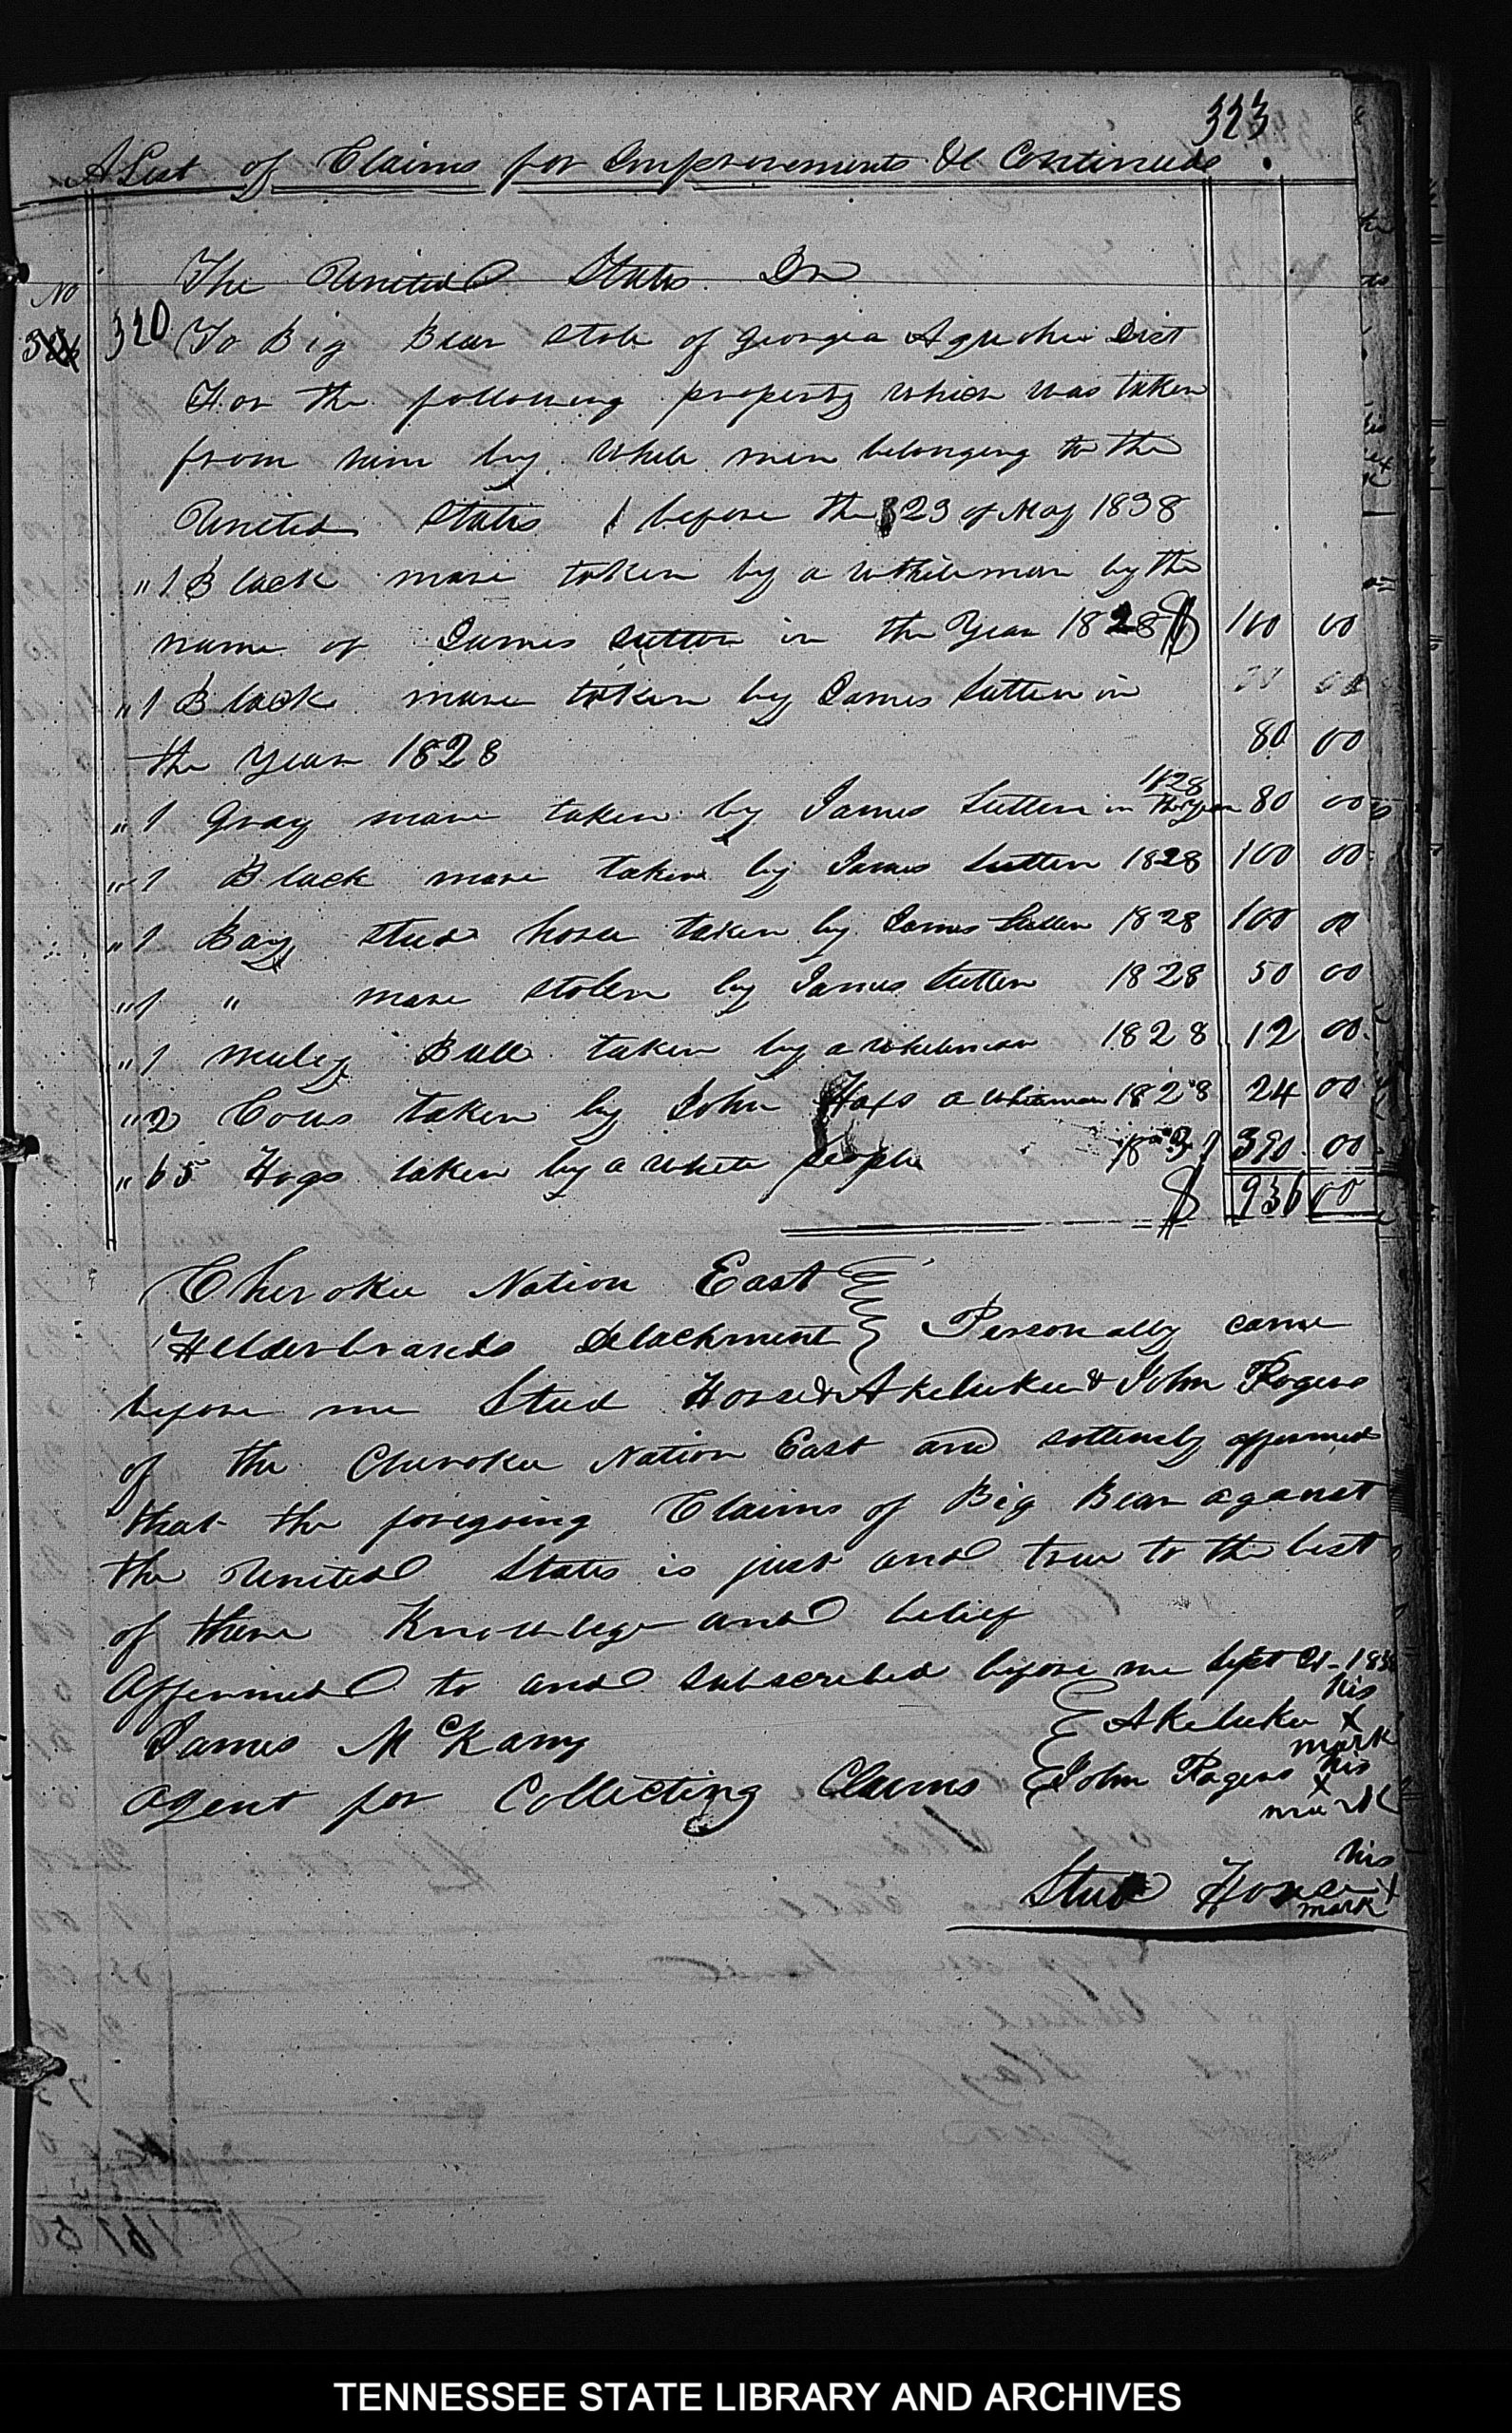 323
A List of Claims for Improvements &c Continued
No
The United States Dr
320 To Big Bear State of Georgia Aquohee Dist
For the following property which was taken
from him by White men belonging to the
United States before the 23 of May 1838
" 1 Black mare taken by a Whiteman by the
name of James Sutten in the Year 1828 $ 100 00
" 1 Black mare taken by James Sutten in
the Year 1828 80 00
" 1 Gray mare taken by James Sutten in the Year 1828 80 00
" 1 Black mare taken by James Sutten 1828 100 00
" 1 Bay stud horse taken by James Sutten 1828 100 00
" 1 " mare stolen by James Sutten 1828 50 00
" 1 muley Bull taken by a Whiteman 1828 12 00
" 2 Cows taken by John a Whiteman 1828 24 00
" 65 Hogs taken by a White people 390 00
$ 936 00
Cherokee Nation East
Helderbrands Detachment Personally came
before me Stud Horse & Akeluke & John Rogers
of the Cherokee Nation East and sollemly affirmed
that the foregoing Claims of Big Bear against
the United States is just and true to the best
of there Knowledge and belief
Affirmed to and subscribed before me Sept 1838
James McKamy
Agent for Collecting Claims
Akeluke his x mark
John Rogers his x mark
Stud Horse his x mark
TENNESSEE STATE LIBRARY AND ARCHIVES